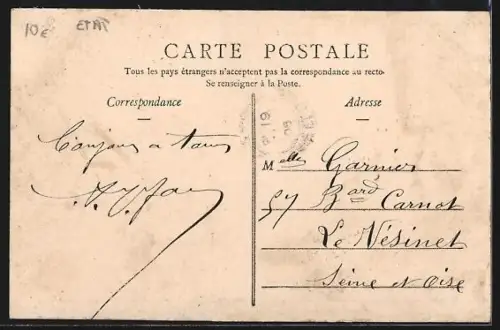 10€ ETAT
CARTE POSTALE
Tous les pays étrangers n'acceptent pas la correspondance au recto-
Se renseigner à la Poste.
Correspondance
Adresse
Bonjour a tous
Melles Garnier
57 Bard Carnot
Le Vésinet
Seine et Oise